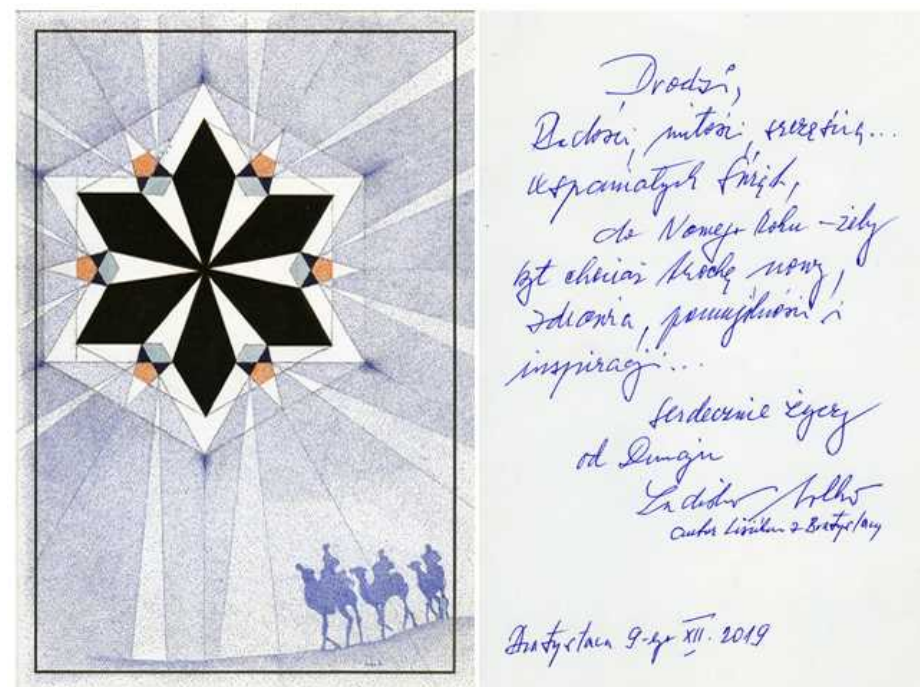 Drodzi,
Radości, miłości, szczęścia...
wspaniałych Świąt,
do Nowego Roku – żeby
był chociaż trochę nowy,
zdrowia, pomyślności i
inspiracji...
Serdecznie życzy
od Dunaju
Ladislav
autor z Bratysławy
Bratysława 9-go XII. 2019